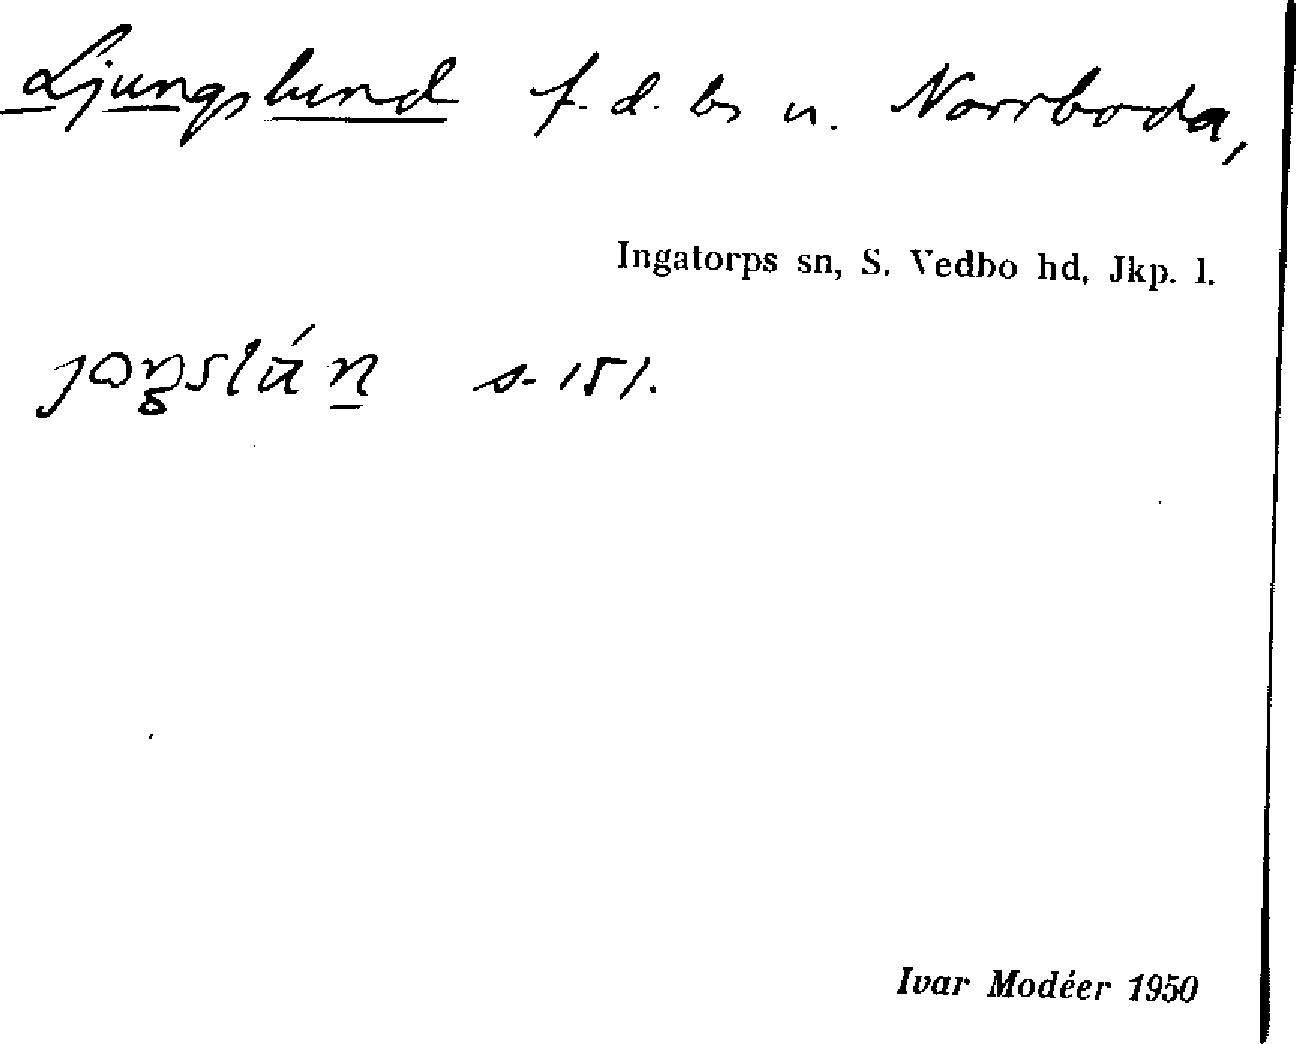 Ljungslund f. d. bs u. Norrboda,
Ingatorps sn, S. Vedbo hd, Jkp. l.
s. 151.
Ivar Modéer 1950